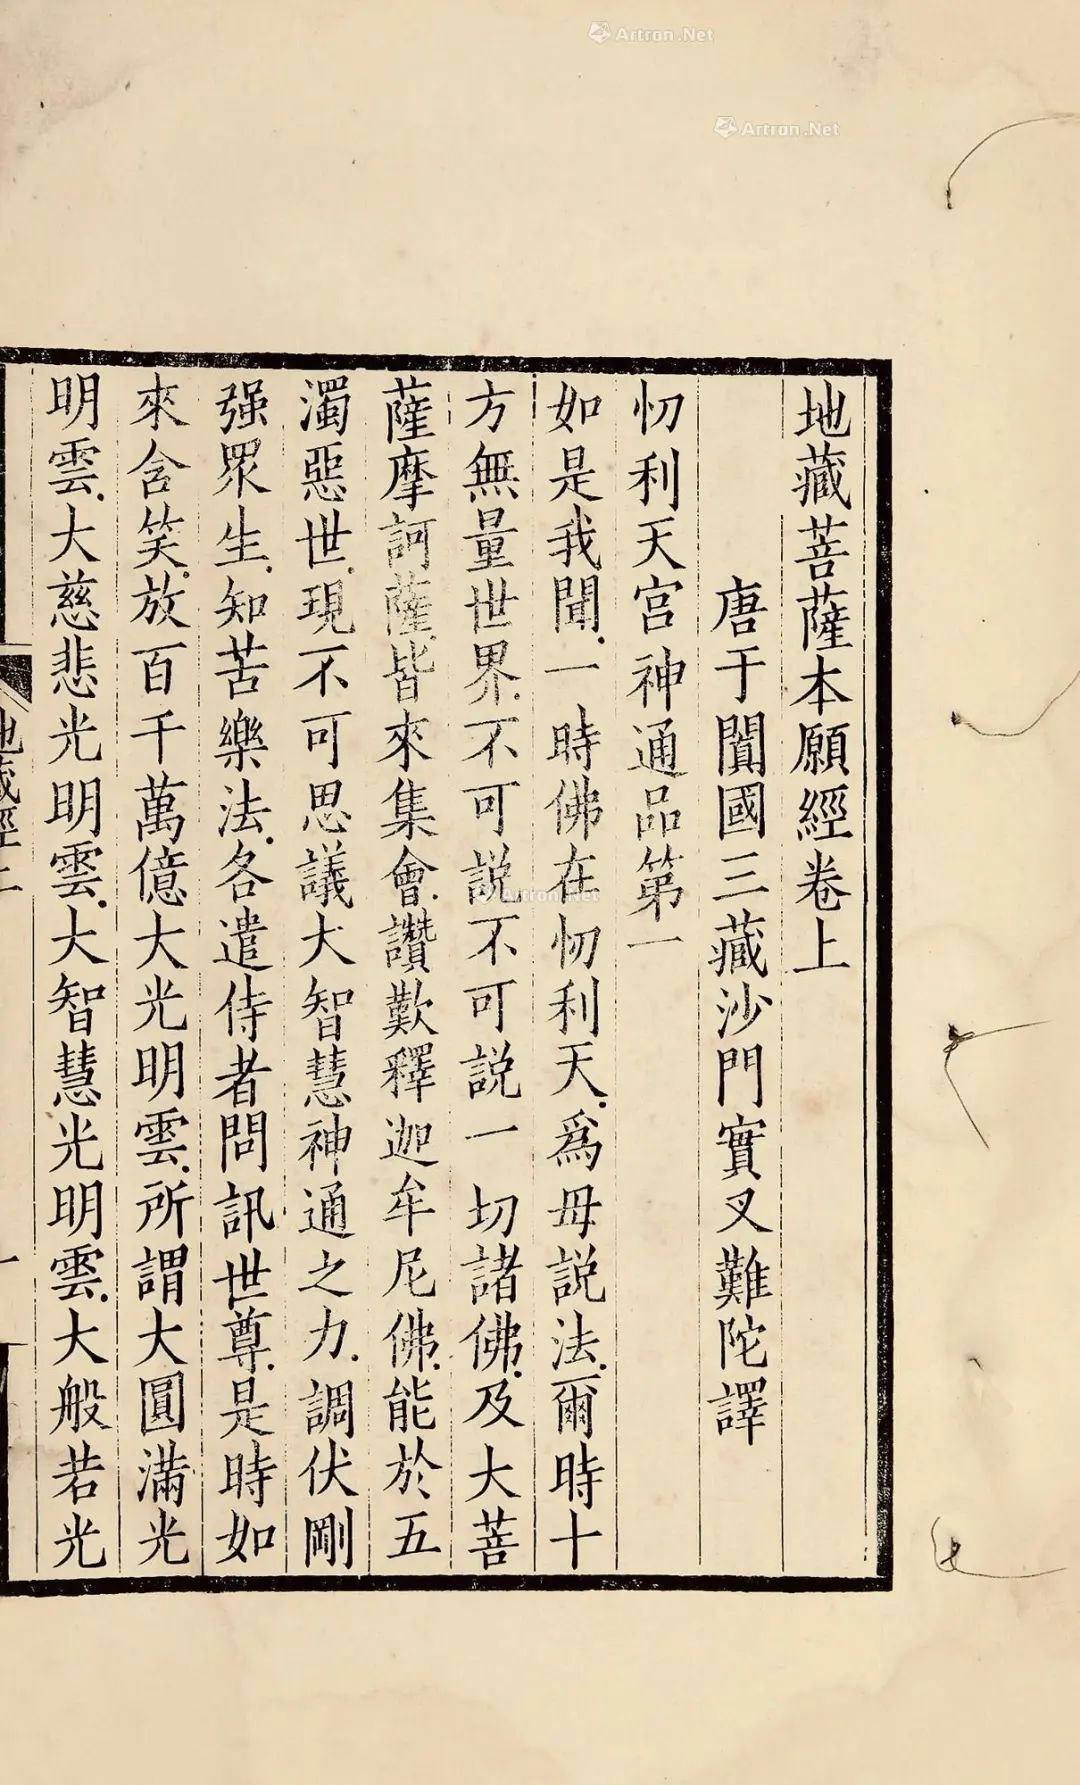 地藏菩薩本願經卷上
唐于闐國三藏沙門實叉難陀譯
忉利天宫神通品第一
如是我聞.一時佛在忉利天.爲母説法.爾時十
方無量世界.不可説不可説一切諸佛.及大菩
薩摩訶薩.皆來集會.讚歎釋迦牟尼佛.能於五
濁惡世.現不可思議大智慧神通之力.調伏剛
强眾生.知苦樂法.各遣侍者問訊世尊.是時如
來含笑.放百千萬億大光明雲.所謂大圓滿光
明雲.大慈悲光明雲.大智慧光明雲.大般若光
地藏經上
一
Artron.Net
Artron.Net
Artron.Net